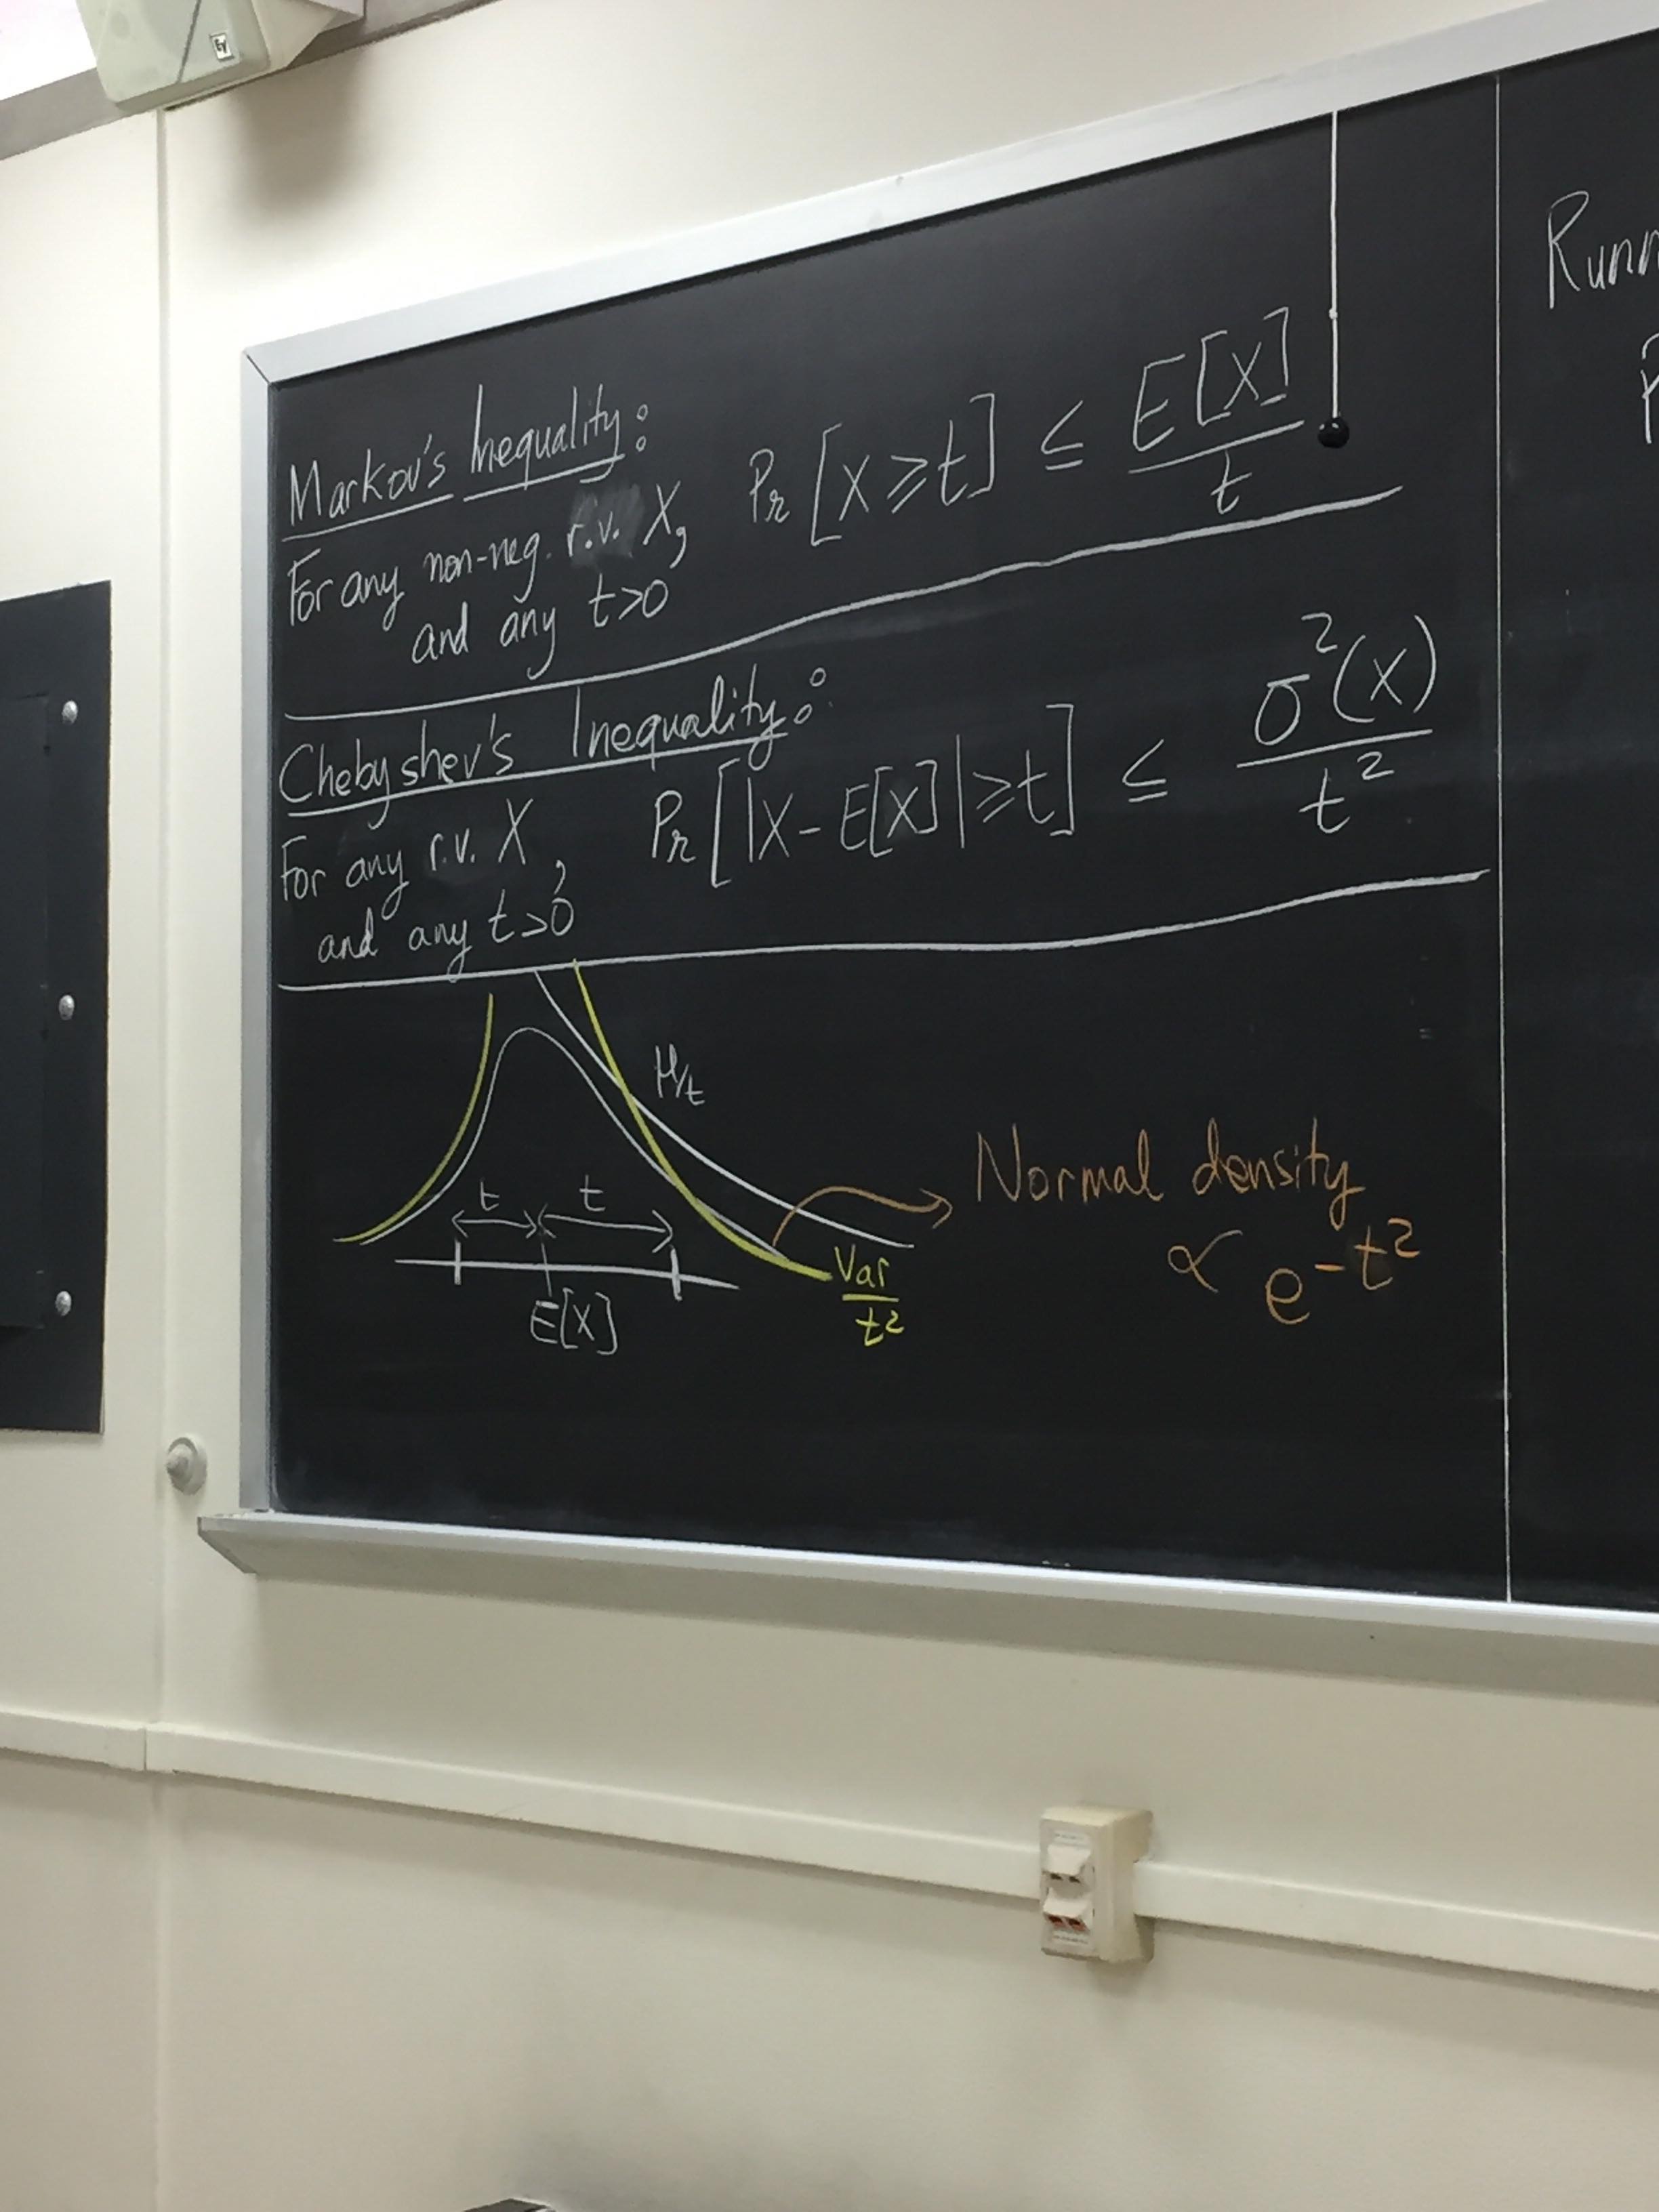 Markov's Inequality:
For any non-neg. r.v. X,
and any t>0
Pr[X ≥ t] ≤ E[X]/t
Chebyshev's Inequality:
For any r.v. X,
and any t>0
Pr[|X - E[X]| ≥ t] ≤ σ²(X)/t²
μ/t
t t
E[X]
Var/t²
Normal density
∝ e^-t²
EV